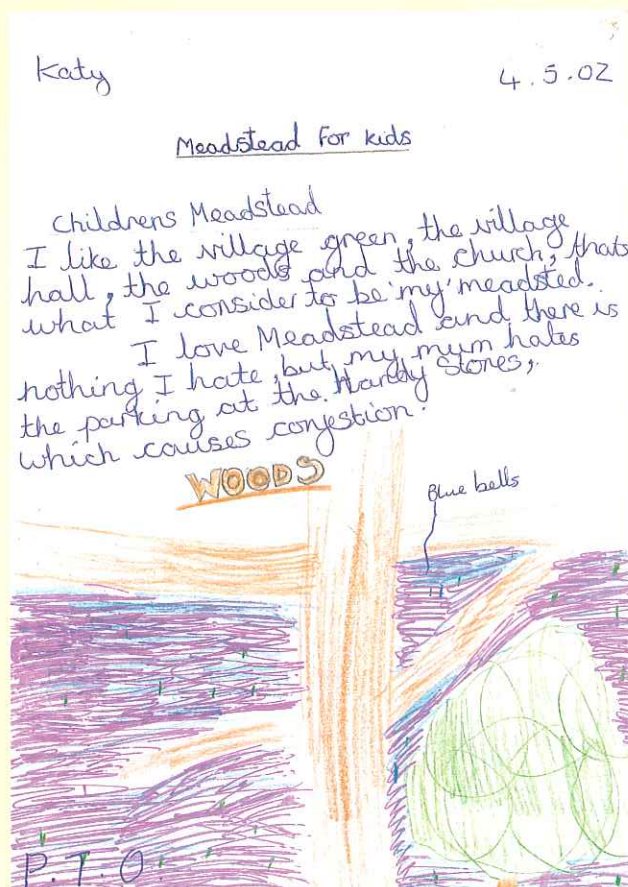 Katy
4.5.02
Meadstead For kids
Childrens Meadstead
I like the village green, the village
hall, the woods and the church, thats
what I consider to be 'my' meadsted.
I love Meadstead and there is
nothing I hate, but my mum hates
the parking at the Handy Stores,
which causes conjestion.
WOODS
Blue bells
P.T.O.